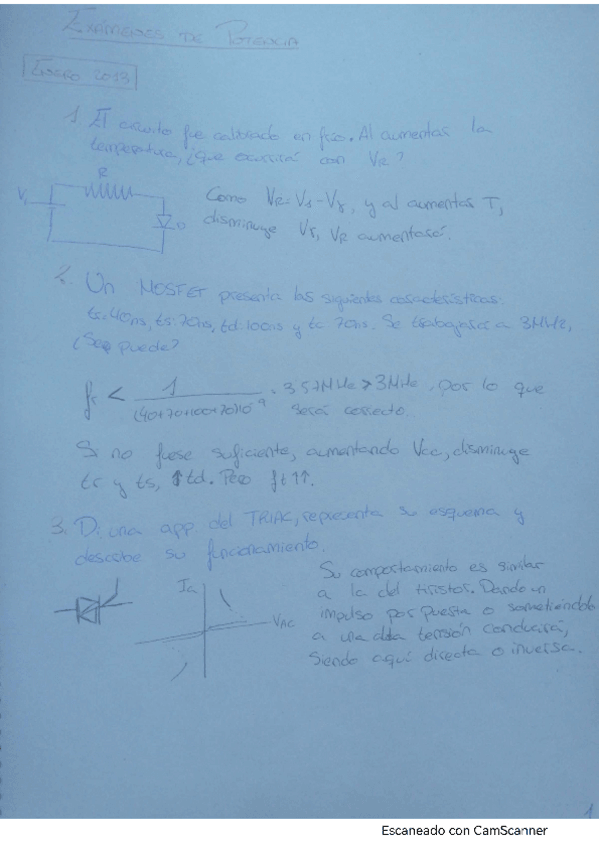 EXÁMENES DE POTENCIA
ENERO 2013
1. El circuito fue calibrado en frío. Al aumentar la
temperatura, ¿Que ocurrirá con VR?
R
V1
D
Como VR=V1-Vγ, y al aumentar T,
disminuye Vγ, VR aumentará.
2. Un MOSFET presenta las siguientes características:
ts:40ns, ts:70ns, td:100ns y tc 70ns. Se trabajará a 3MHz,
¿Se puede?
fs < 1/(40+70+100+70)10⁻⁹ = 3'57MHz > 3MHz, por lo que
será correcto.
Si no fuese suficiente, aumentando Vcc, disminuye
tr y ts, ↑td. Pero ft↑↑.
3. Di una app. del TRIAC, representa su esquema y
describe su funcionamiento.
Ia
VAC
Su comportamiento es similar
a la del tiristor. Dando un
impulso por puerta o sometiéndolo
a una alta tensión conducirá,
siendo aquí directa o inversa.
1
Escaneado con CamScanner